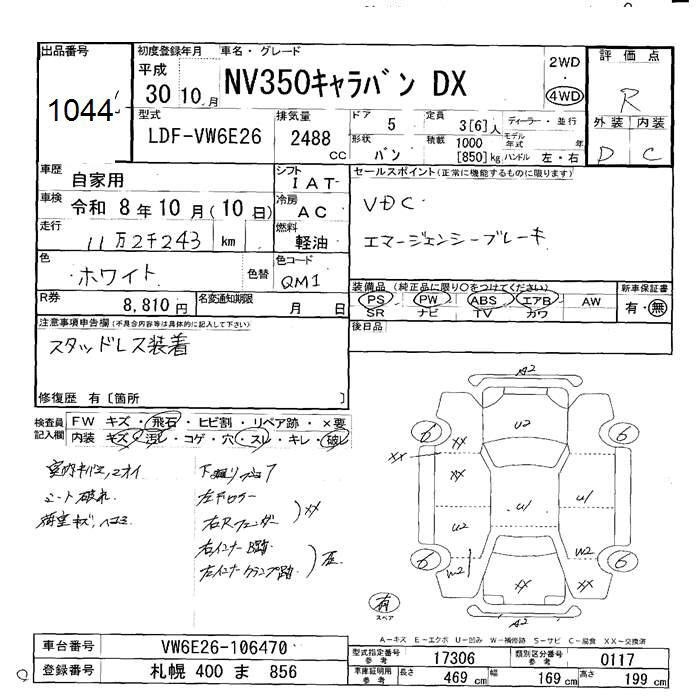 出品番号
1044
初度登録年月 車名・グレード
平成
30 10月
NV350キャラバン DX
2WD
・
4WD
評価点
R
外装 内装
D C
型式
LDF-VW6E26
排気量
2488
cc
ドア 5
定員 3[6]人
ディーラー・並行
形状 バン
積載 1000
[850]kg
モデル年式 年
ハンドル 左・右
車歴
自家用
シフト
IAT
車検 令和 8年10月(10日)
冷房
AC
走行
11万2千243 km
燃料
軽油
色
ホワイト
色替
色コード
QM1
R券
8,810円
名変通知期限
月 日
セールスポイント(正常に機能するものに限ります)
VDC
エマージェンシーブレーキ
装備品 (純正品に限り〇をつけてください)
PS PW ABS エアB AW
SR ナビ TV カワ
新車保証書
有・無
後日品
注意事項申告欄(不具合内容等は具体的に記入して下さい)
スタッドレス装着
修復歴 有〔箇所 〕
検査員
記入欄
FW キズ・飛石・ヒビ割・リペア跡・×要
内装 キズ・汚レ・コゲ・穴・スレ・キレ・破レ
シート破れ
A2
6 U2 6
XX
XX
XX
U2 U1 U1
6 W2 XX W2 XX 6
A2
有
スペア
A-キズ E-エクボ U-凹み W-補修跡 S-サビ C-腐食 XX-交換済
車台番号 VW6E26-106470
登録番号 札幌 400 ま 856
型式指定番号
参考
17306
類別区分番号
参考
0117
車庫証明用
参考
長さ 469 cm
幅 169 cm
高さ 199 cm